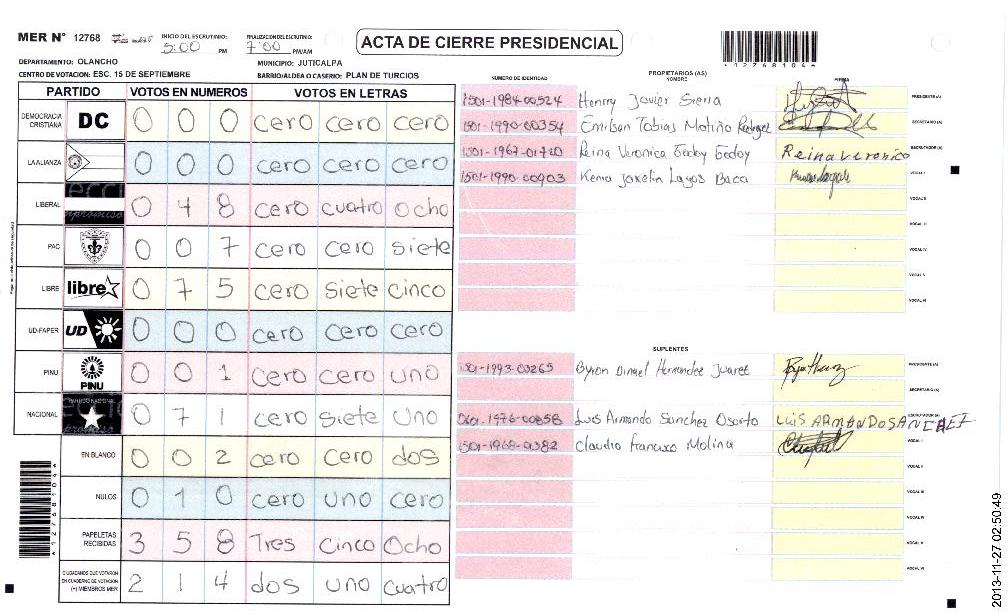 MER N° 12768
INICIO DEL ESCRUTINIO: 5:00 PM
FINALIZACION DEL ESCRUTINIO: 7:00 PM/AM
ACTA DE CIERRE PRESIDENCIAL
*127681044*
DEPARTAMENTO: OLANCHO
MUNICIPIO: JUTICALPA
CENTRO DE VOTACION: ESC. 15 DE SEPTIEMBRE
BARRIO/ALDEA O CASERIO: PLAN DE TURCIOS
PARTIDO VOTOS EN NUMEROS VOTOS EN LETRAS
DEMOCRACIA CRISTIANA DC 0 0 0 cero cero cero
LA ALIANZA 0 0 0 cero cero cero
LIBERAL 0 4 8 cero cuatro ocho
PAC 0 0 7 cero cero siete
LIBRE libre 0 7 5 cero siete cinco
UD-FAPER UD 0 0 0 cero cero cero
PINU PINU 0 0 1 cero cero uno
NACIONAL 0 7 1 cero siete uno
EN BLANCO 0 0 2 cero cero dos
NULOS 0 1 0 cero uno cero
PAPELETAS RECIBIDAS 3 5 8 Tres cinco ocho
CIUDADANOS QUE VOTARON EN CUADERNO DE VOTACION (+) MIEMBROS MER 2 1 4 dos uno cuatro
NUMERO DE IDENTIDAD
PROPIETARIOS (AS)
NOMBRE
FIRMA
1501-1984-00524 Henry Javier Sierra PRESIDENTE (A)
1501-1990-00354 Emilson Tobias Matiño SECRETARIO (A)
1501-1967-01720 Reina Veronica Godoy Godoy Reina veronica ESCRUTADOR (A)
1501-1990-00903 Kenia Jaxelin Lagos Baca VOCAL I
VOCAL II
VOCAL III
VOCAL IV
VOCAL V
VOCAL VI
SUPLENTES
1501-1993-00265 Byron Dinael Hernandez Juarez PRESIDENTE (A)
SECRETARIO (A)
0601-1976-00858 Luis Armando Sanchez Osorto LUIS ARMANDO SANCHEZ ESCRUTADOR (A)
1501-1968-0382 Claudio Molina VOCAL I
VOCAL II
VOCAL III
VOCAL IV
VOCAL V
VOCAL VI
*127681044*
2013-11-27 02:50:49